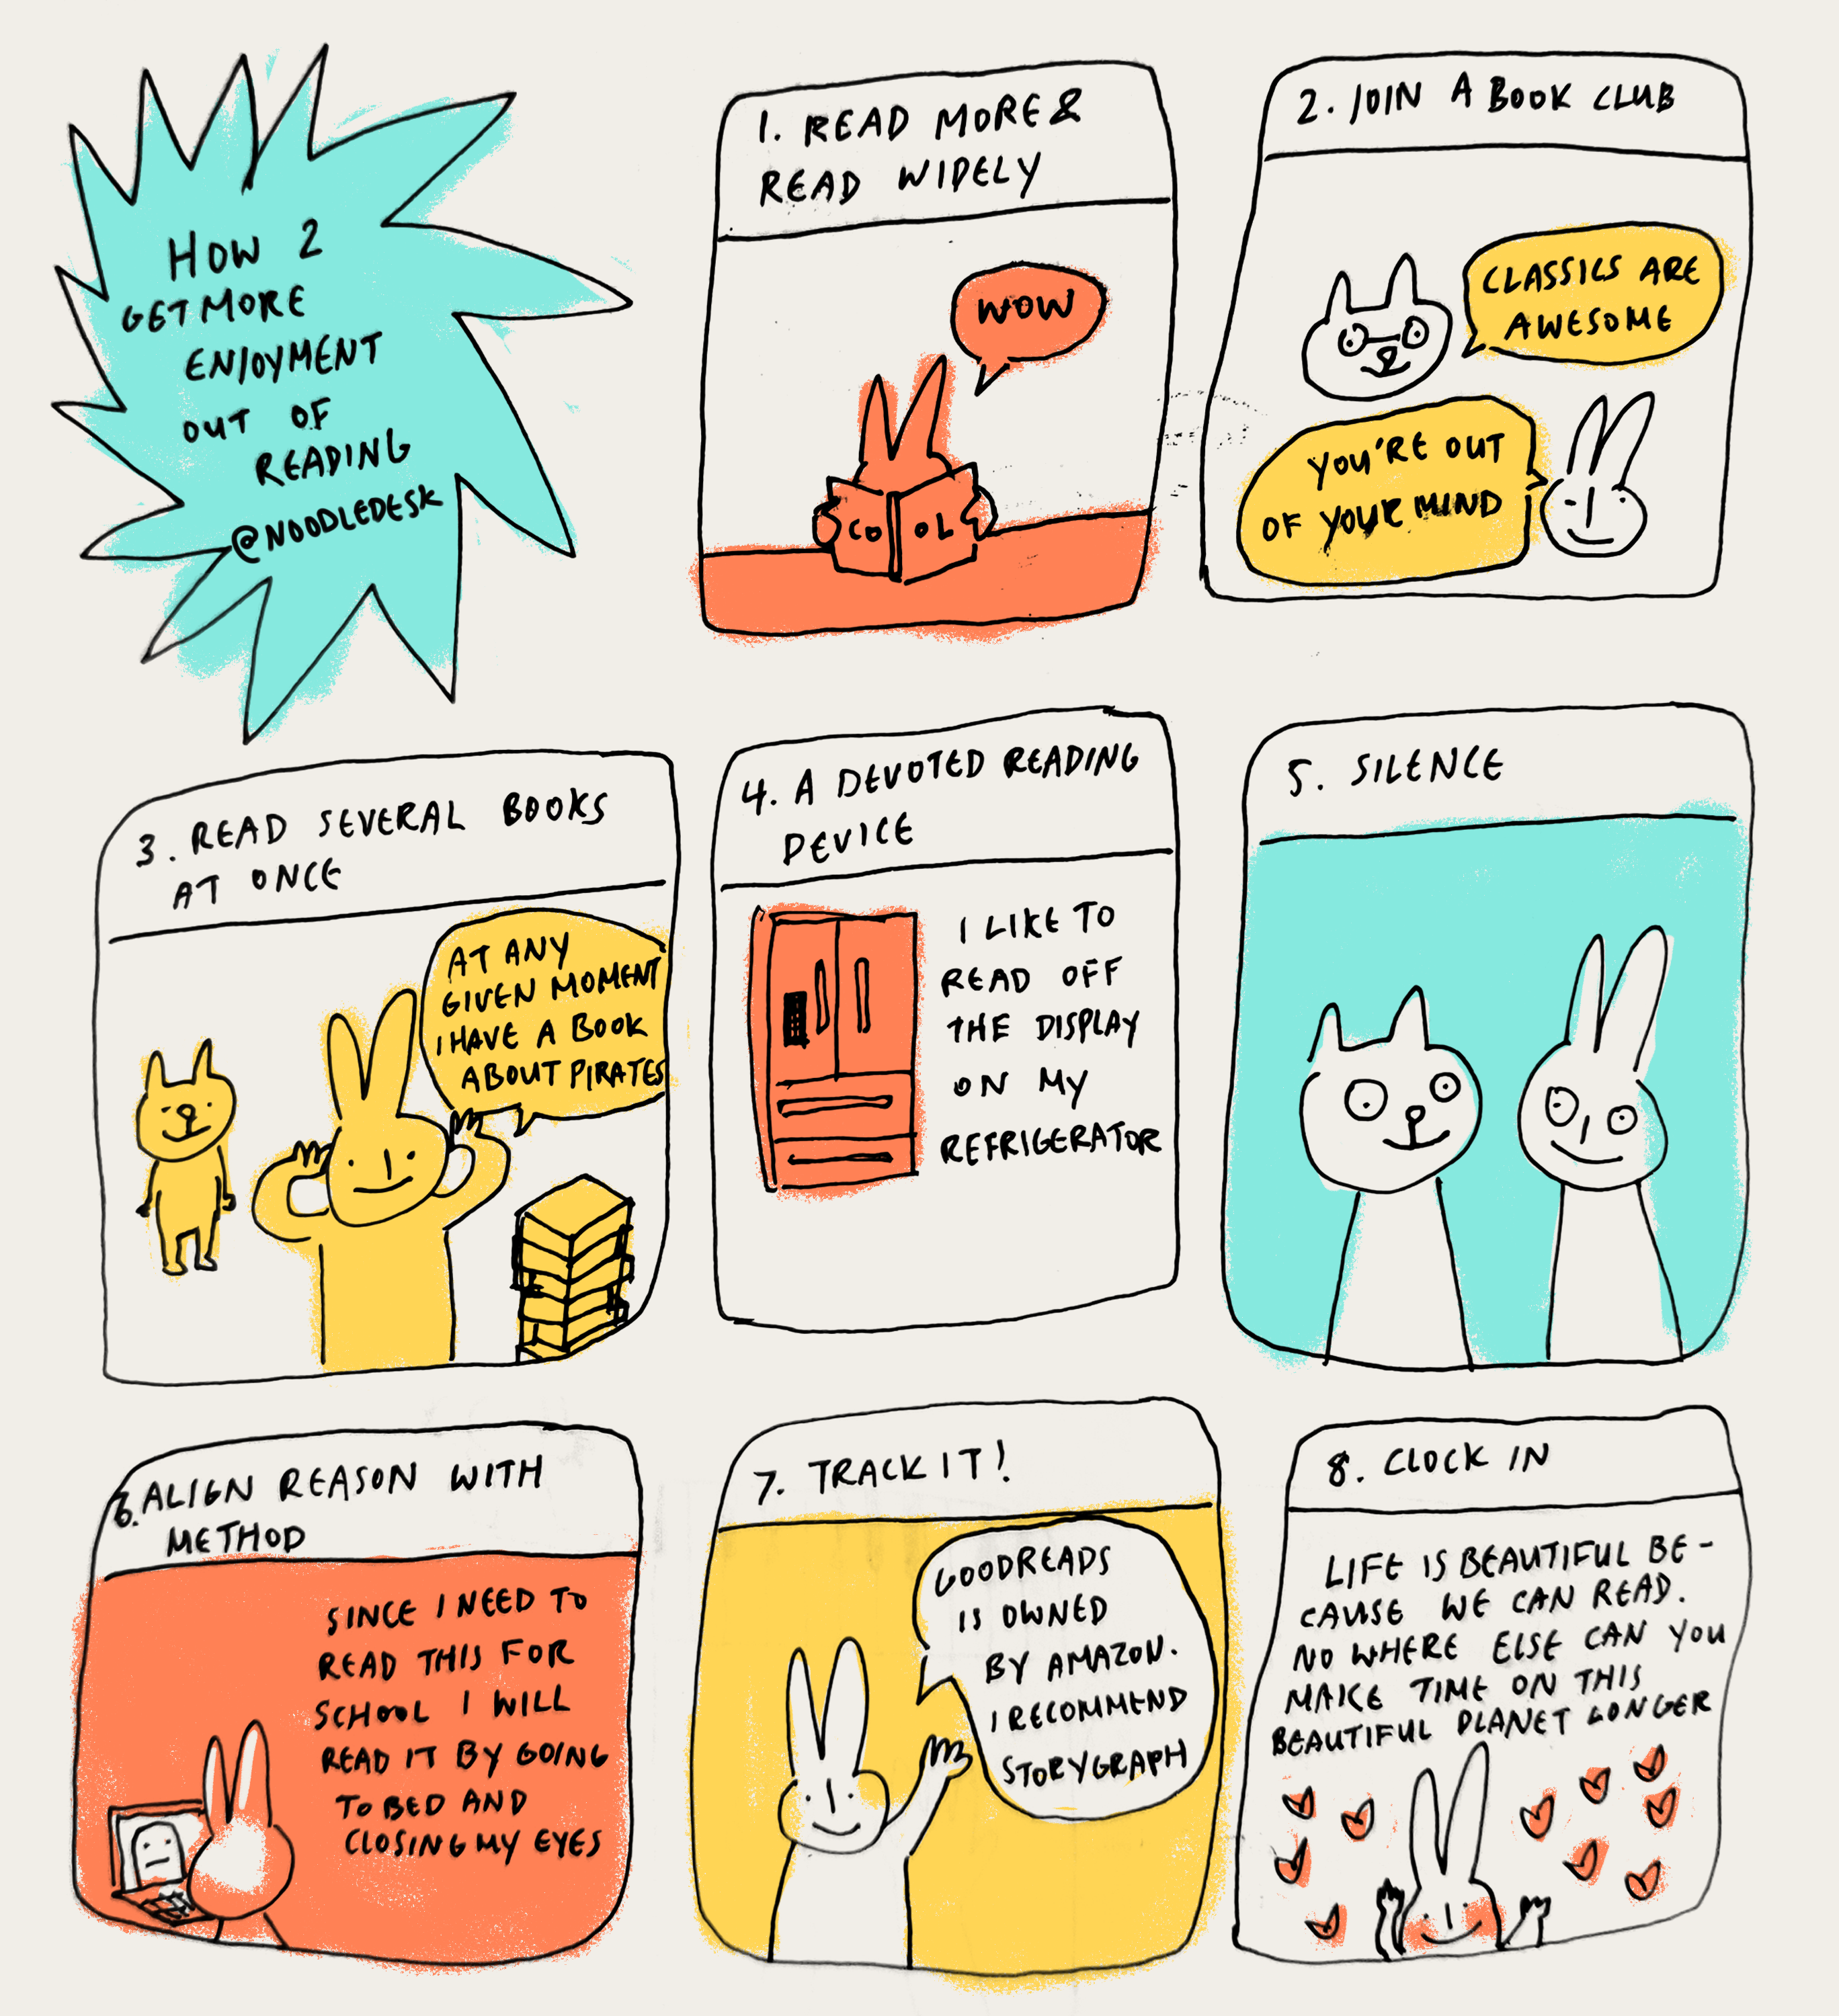 HOW 2
GET MORE
ENJOYMENT
OUT OF
READING
@NOODLEDESK
1. READ MORE &
READ WIDELY
WOW
CO OL
2. JOIN A BOOK CLUB
CLASSICS ARE
AWESOME
YOU'RE OUT
OF YOUR MIND
3. READ SEVERAL BOOKS
AT ONCE
AT ANY
GIVEN MOMENT
I HAVE A BOOK
ABOUT PIRATES
4. A DEVOTED READING
DEVICE
I LIKE TO
READ OFF
THE DISPLAY
ON MY
REFRIGERATOR
5. SILENCE
6. ALIGN REASON WITH
METHOD
SINCE I NEED TO
READ THIS FOR
SCHOOL I WILL
READ IT BY GOING
TO BED AND
CLOSING MY EYES
7. TRACK IT!
GOODREADS
IS OWNED
BY AMAZON.
I RECOMMEND
STORYGRAPH
8. CLOCK IN
LIFE IS BEAUTIFUL BE-
CAUSE WE CAN READ.
NO WHERE ELSE CAN YOU
MAKE TIME ON THIS
BEAUTIFUL PLANET LONGER